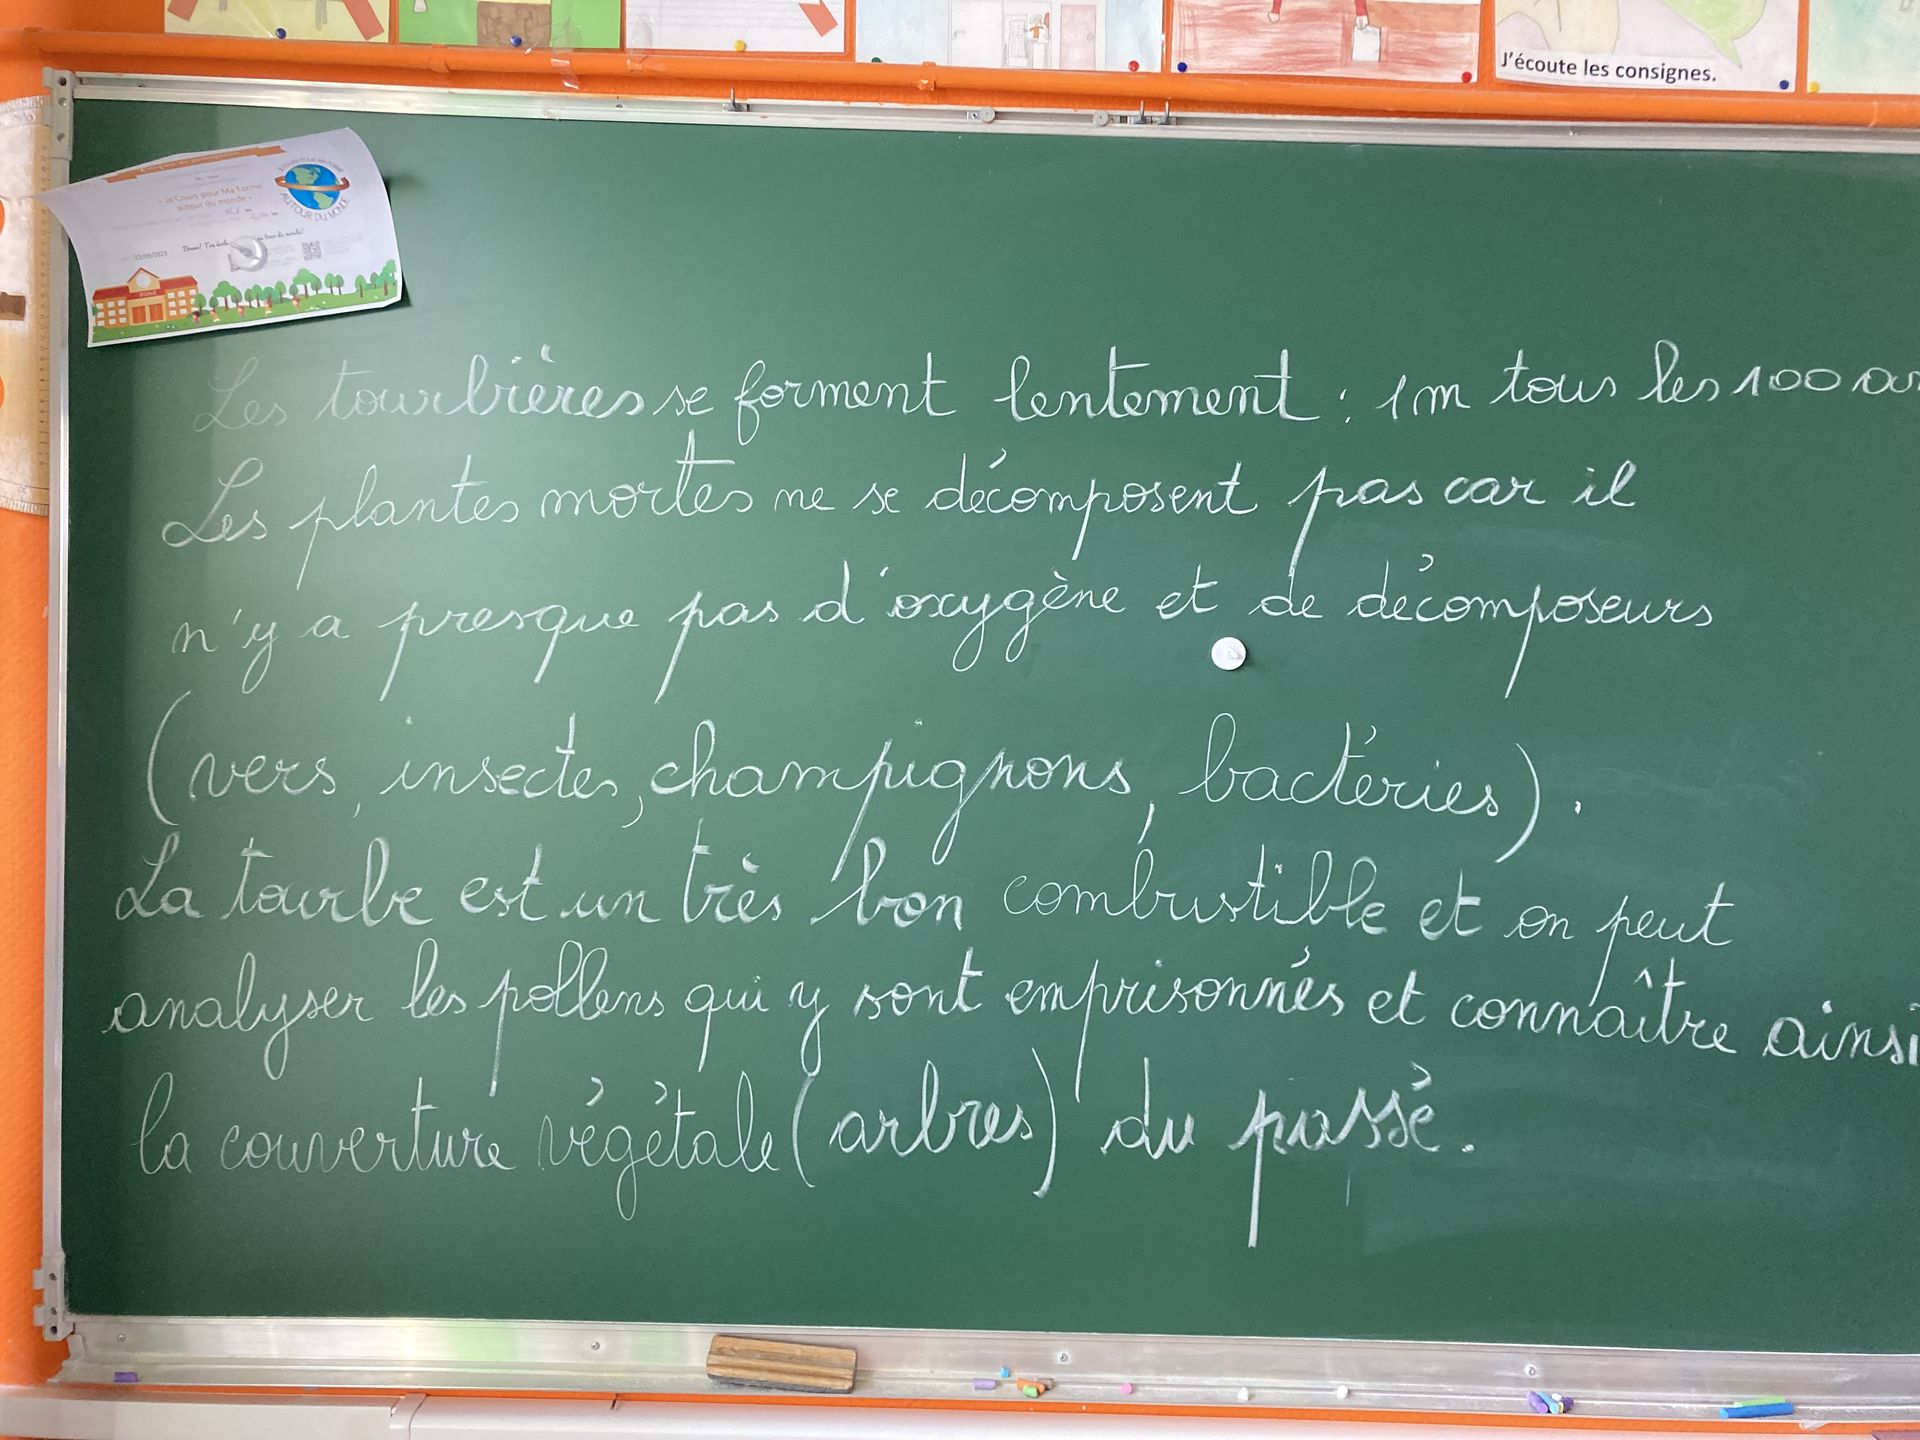 J'écoute les consignes.
« Le Cours pour Ma Forme
autour du monde »
AUTOUR DU MONDE
22/09/2023
ECOLE
Les tourbières se forment lentement : 1m tous les 100 an
Les plantes mortes ne se décomposent pas car il
n'y a presque pas d'oxygène et de décomposeurs
(vers, insectes, champignons, bactéries).
La tourbe est un très bon combustible et on peut
analyser les pollens qui y sont emprisonnés et connaître ainsi
la couverture végétale (arbres) du passé.